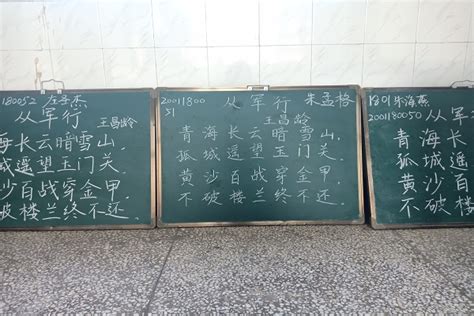 180052 左子杰
从军行
王昌龄
海长云暗雪山，
城遥望玉门关
沙百战穿金甲
破楼兰终不还.
20011800
51
从军行
朱孟格
王昌龄
青海长云暗雪山，
孤城遥望玉门关.
黄沙百战穿金甲，
不破楼兰终不还.
1801 朱海燕
2001180050
从军
青海长
孤城遥
黄沙百
不破楼